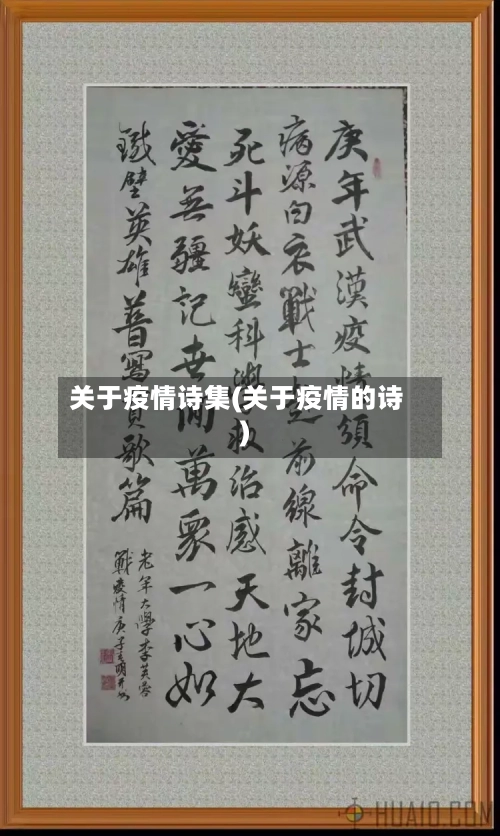 庚年武漢疫情頒命令封城切
病源白衣戰士前線離家忘
死斗妖蠻科學救治感天地大
愛無疆記世間萬眾一心如
鐵壁英雄普寫歌篇
老年大學李芙蓉
戰疫情庚子
关于疫情诗集(关于疫情的诗
)
HUAIO.COM